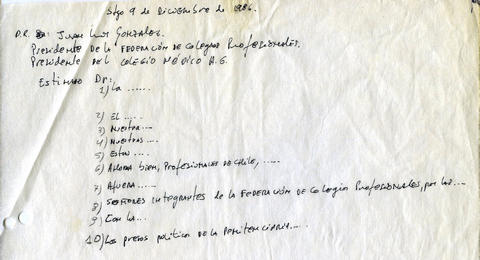 Stgo 9 de Diciembre de 1986.
D.R. Sr: Juan Luis Gonzalez.
Presidente de la Federación de Colegios Profesionales.
Presidente del Colegio Médico A.G.
Estimado Dr:
1) La ......
2) El .....
3) Nuestra ....
4) Nuestros ....
5) Esta ....
6) Ahora bien, Profesionales de Chile, ......
7) Afuera .....
8) Señores integrantes de la Federación de Colegios Profesionales, por las ....
9) Con la ...
10) Los presos politicos de la Penitenciaria ....